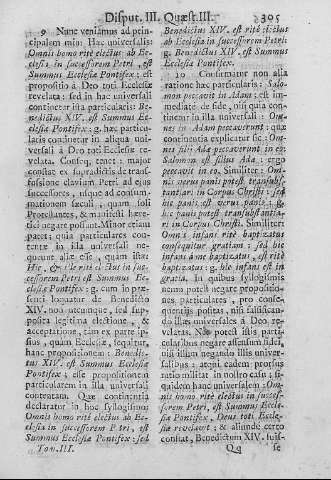 Disput. III. Quæst. III.
305
9 Nunc veniamus ad prin-
cipalem min: Hæc universalis:
Omnis homo ritè electus ab Ec-
clesia in successorem Petri, est
Summus Ecclesiæ Pontifex: est
propositio à Deo toti Ecclesiæ
revelata: sed in hac universali
continetur ista particularis: Be-
nedictus XIV. est Summus Ec-
clesiæ Pontifex: g. hæc particu-
laris continetur in aliqua uni-
versali à Deo toti Ecclesiæ re-
velata. Conseq. tenet: major
constat ex supradictis de trans-
fossione clavium Petri ad ejus
successores, usque ad consum-
mationem sæculi, quam soli
Protestantes, & manifesti hære-
tici negare possunt. Minor etiam
patet; quia particulares con-
tentæ in illa universali ne-
queunt aliæ esse, quam istæ:
Hic, & ille ritè electus in suc-
cessorem Petri est Summus Ec-
clesiæ Pontifex: g. cum in præ-
senti loquatur de Benedicto
XIV. non utcunque, sed sup-
posita legitima electione, &
acceptatione, tam ex parte ip-
sius, quam Ecclesiæ, sequitur,
hanc propositionem: Benedic-
tus XIV. est Summus Ecclesiæ
Pontifex; esse propositionem
particularem in illa universali
contentam. Quæ continentia
declaratur in hoc syllogismo:
Omnis homo ritè electus ab Ec-
clesia in successorem Petri, est
Summus Ecclesiæ Pontifex: sed
Tom. III.
Benedictus XIV. est ritè electus
ab Ecclesia in successorem Petri:
g. Benedictus XIV. est Summus
Ecclesiæ Pontifex.
10 Confirmatur non alia
ratione hæc particularis: Salo-
mon in Adam peccavit; est im-
mediatè de fide, nisi quia con-
tinetur in hac universali: Om-
nes in Adam peccaverunt: quæ
continentia explicatur sic: Om-
nes filii Adæ peccaverunt in eo:
Salomon est filius Adæ: ergo
peccavit in eo. Similiter: Om-
nis verus panis potest transubs-
tantiari in Corpus Christi: sed
hic panis est verus panis: g.
hic panis potest transubstantia-
ri in Corpus Christi. Similiter:
Omnis infans ritè baptizatus
consequitur gratiam: sed hic
infans à me baptizatus, est ritè
baptizatus: g. hic infans est in
gratia. In quibus syllogismis
nemo potest negare propositio-
nes particulares, pro conse-
quentiis positas, nisi falsifican-
do illas universales à Deo re-
velatas. Non potest istis parti-
cularibus negare assensum fidei,
nisi illum negando illis univer-
salibus: atqui eadem prorsus
ratio militat in nostro casu: si-
quidem hanc universalem: Om-
nis homo ritè electus in succes-
sorem Petri, est Summus Eccle-
siæ Pontifex, Deus toti Ecclesiæ
revelavit; & aliunde certò
constat, Benedictum XIV. fuis-
Qq
se